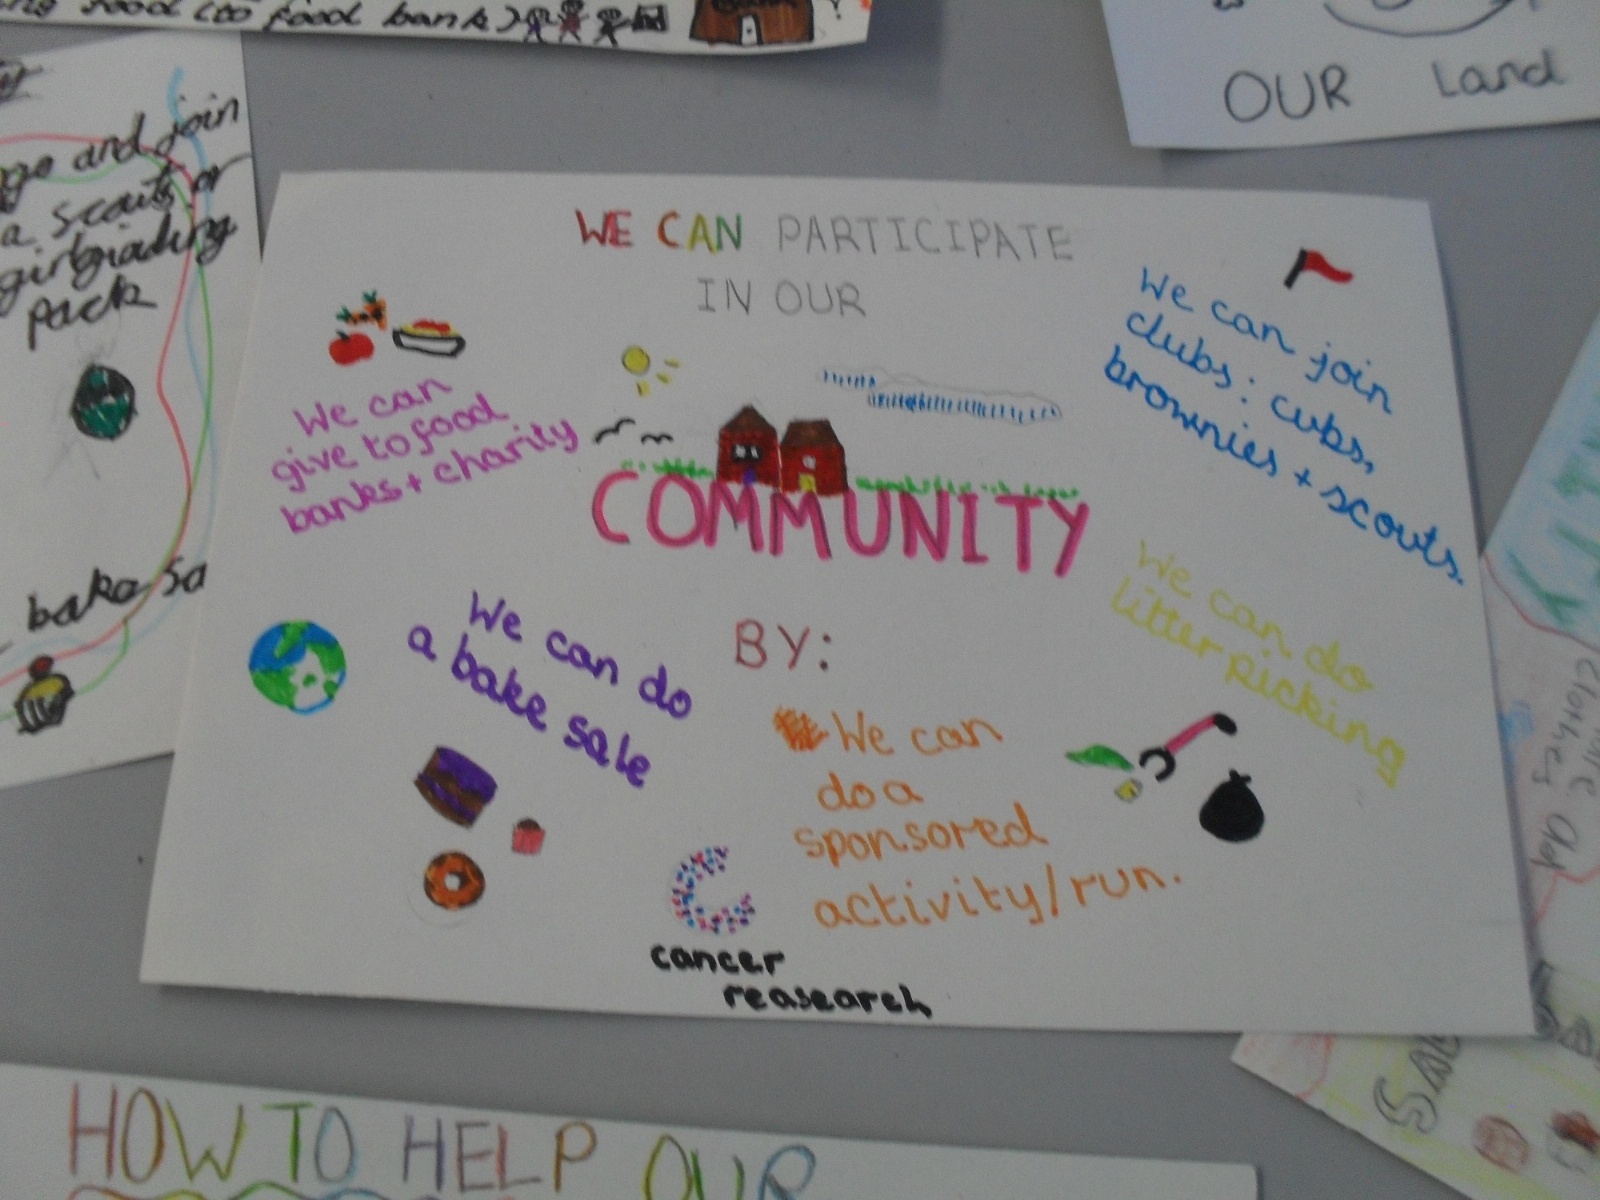 food (to food bank)
OUR Land
go and join
a scouts or
girlgiading
pack
bake sa
WE CAN PARTICIPATE
IN OUR
COMMUNITY
BY:
We can
give to food
banks + charity
We can join
clubs: cubs,
brownies + scouts.
We can do
a bake sale
We can do
litter picking
We can
do a
sponsored
activity/run.
cancer
reasearch
HOW TO HELP OUR